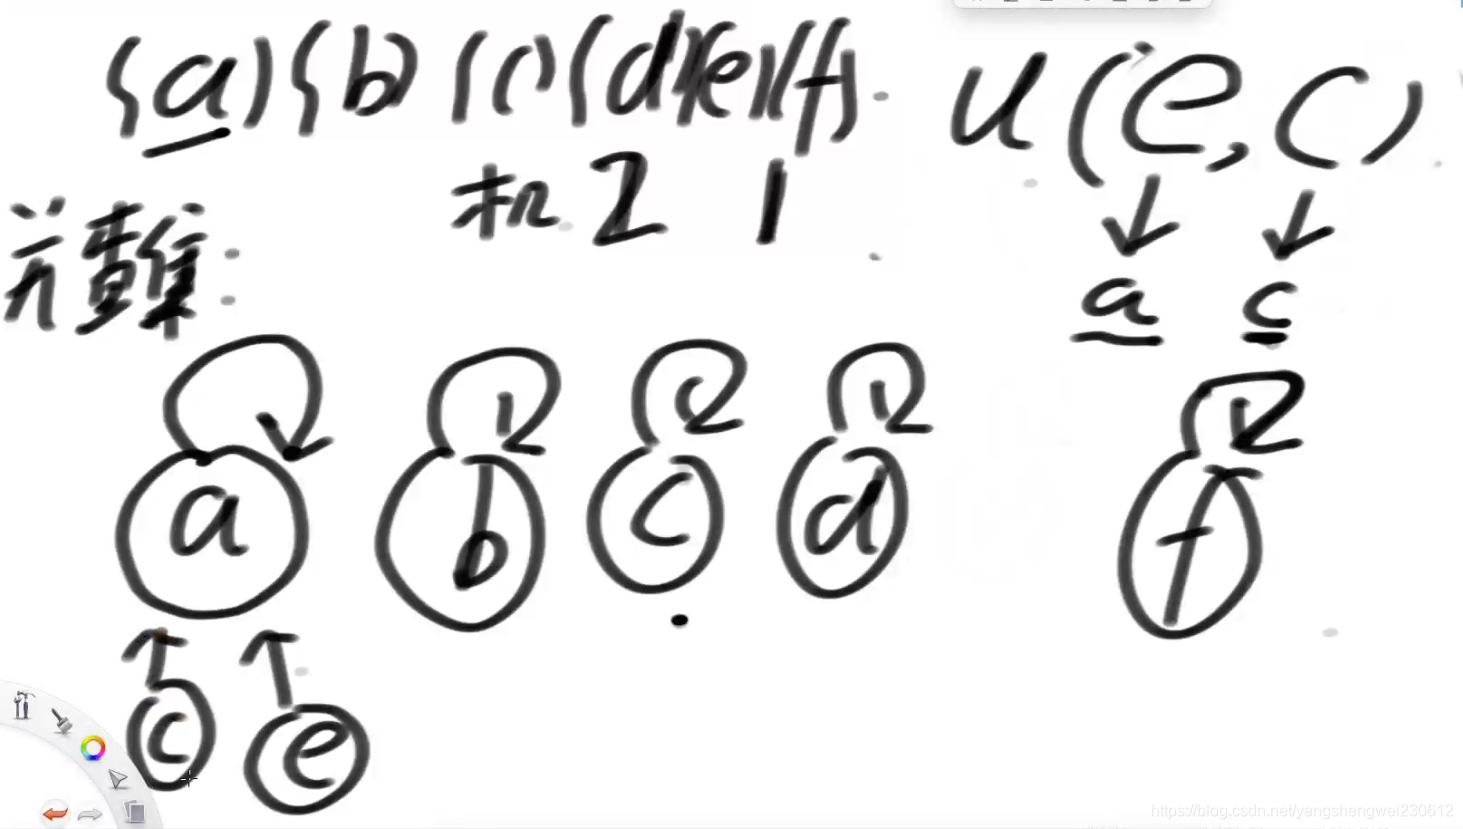 {a} {b} {c} {d} {e} {f} U(e, c)
2 1
并查集:
a c
a b c d f
c e
https://blog.csdn.net/yangshengwei230612